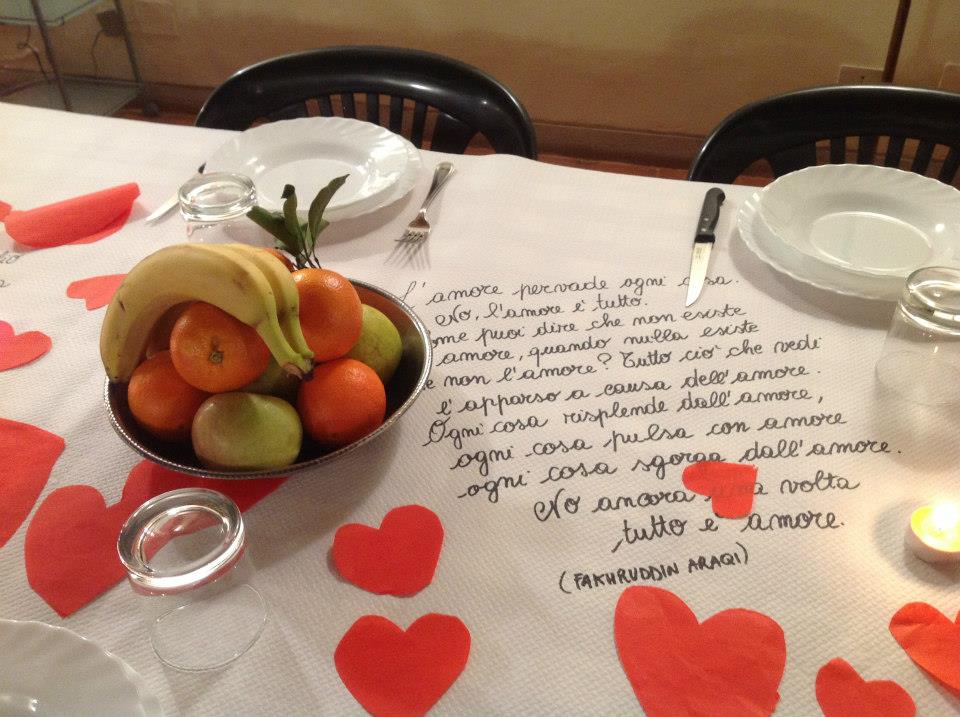 L'amore pervade ogni cosa.
No, l'amore è tutto.
ome puoi dire che non esiste
amore, quando nulla esiste
e non l'amore? Tutto ciò che vedi
è apparso a causa dell'amore.
Ogni cosa risplende dall'amore,
ogni cosa pulsa con amore
ogni cosa sgorga dall'amore.
No ancora una volta
tutto è amore.
(FAKHRUDDIN ARAQI)